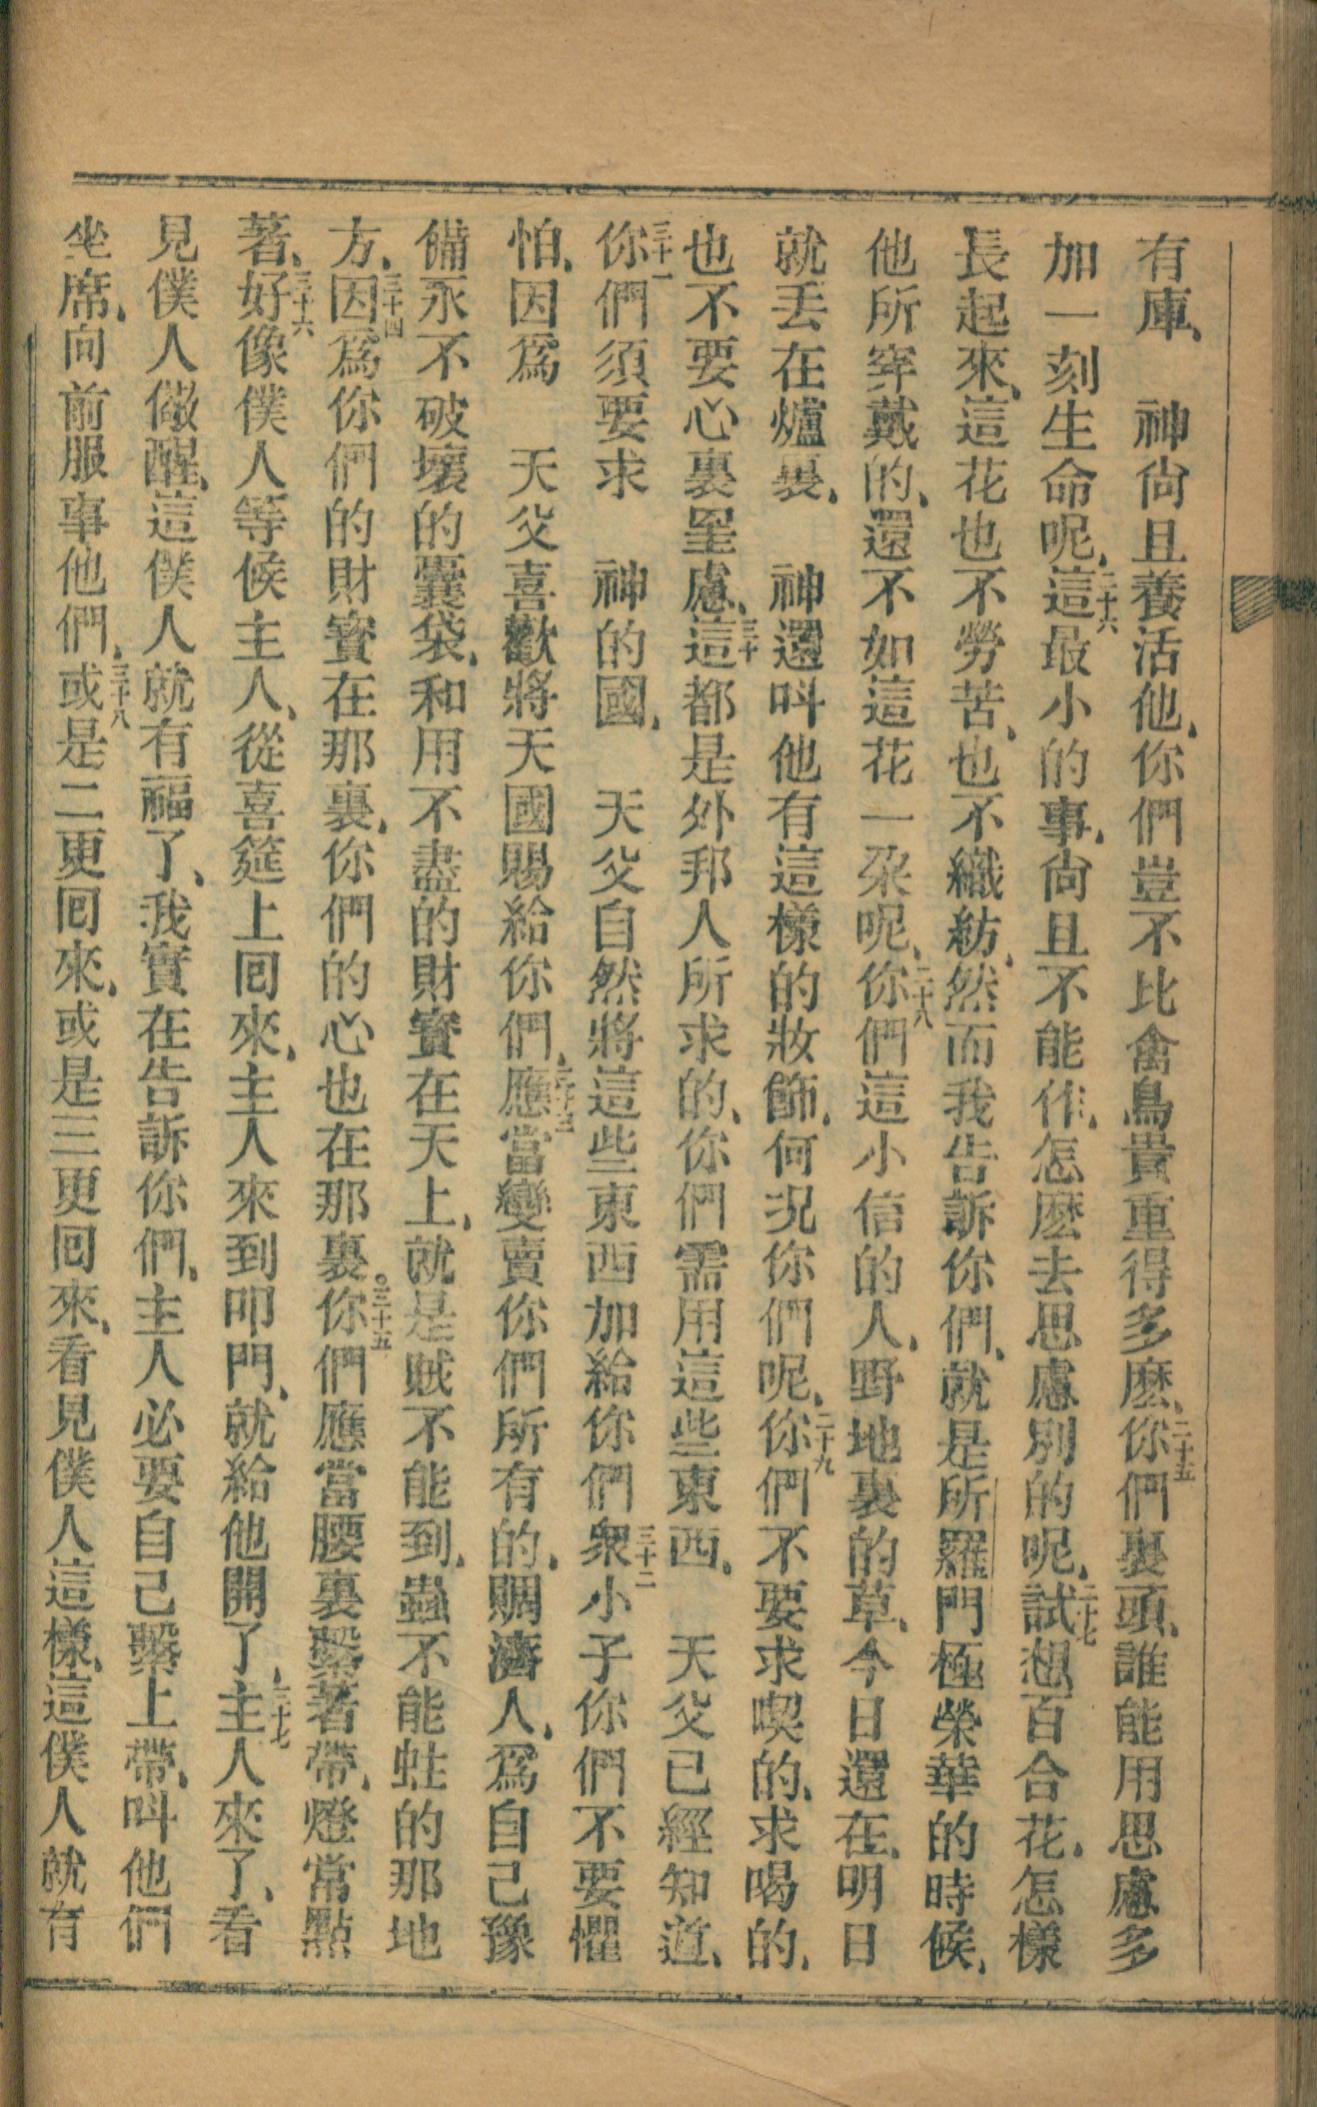 有庫、　神尙且養活他、你們豈不比禽鳥貴重得多麽、二十五你們裏頭、誰能用思慮多
加一刻生命呢、二十六這最小的事、尙且不能作、怎麽去思慮別的呢、二十七試想百合花、怎樣
長起來、這花也不勞苦、也不織紡、然而我告訴你們、就是所羅門極榮華的時候、
他所穿戴的、還不如這花一朶呢、二十八你們這小信的人、野地裏的草、今日還在、明日
就丟在爐裏、　神還呌他有這樣的妝飾、何况你們呢、二十九你們不要求喫的、求喝的、
也不要心裏罣慮、三十這都是外邦人所求的、你們需用這些東西、　天父已經知道、
三十一你們須要求　神的國、　天父自然將這些東西加給你們、三十二衆小子你們不要懼
怕、因爲　天父喜歡將天國賜給你們、三十三應當變賣你們所有的、賙濟人、爲自己豫
備永不破壞的囊袋、和用不盡的財寶在天上、就是賊不能到、蟲不能蛀的那地
方、三十四因爲你們的財寶在那裏、你們的心也在那裏。三十五你們應當腰裏繫著帶、燈常點
著、三十六好像僕人等候主人、從喜筵上囘來、主人來到叩門、就給他開了、三十七主人來了、看
見僕人儆醒、這僕人就有福了、我實在告訴你們、主人必要自己繫上帶、呌他們
坐席、向前服事他們、三十八或是二更囘來、或是三更囘來、看見僕人這樣、這僕人就有